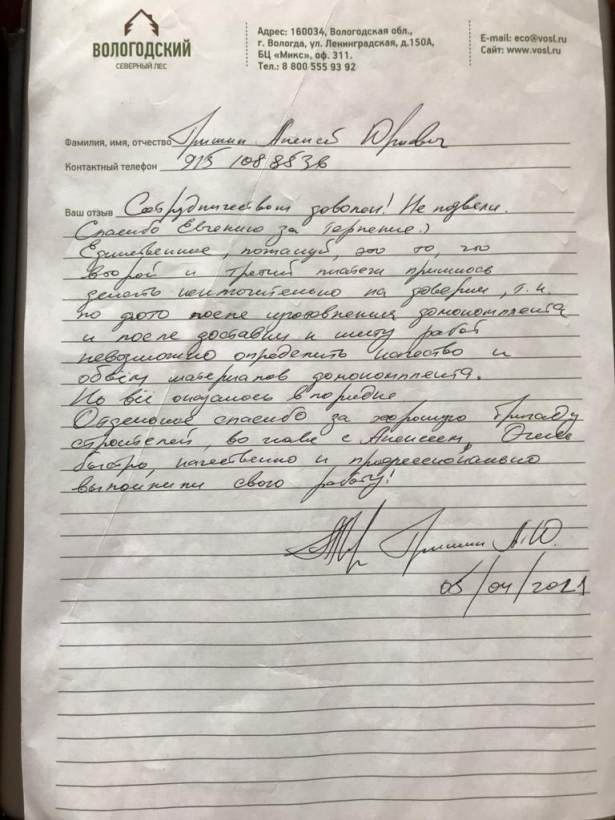 ВОЛОГОДСКИЙ
СЕВЕРНЫЙ ЛЕС
Адрес: 160034, Вологодская обл.,
г. Вологда, ул. Ленинградская, д.150А,
БЦ «Микс», оф. 311.
Тел.: 8 800 555 93 92
E-mail: eco@vosl.ru
Сайт: www.vosl.ru
Фамилия, имя, отчество Гришин Алексей Юрьевич
Контактный телефон 915 108 8536
Ваш отзыв Сотрудничеством доволен! Не подвели.
Спасибо Евгению за терпение:)
Единственное, пожалуй, это то, что
второй и третий платежи пришлось
делать исключительно на доверии, т.к.
по фото после изготовления домокомплекта
и после доставки к месту работ
невозможно определить качество и
объём материалов домокомплекта.
Но всё оказалось в порядке
Отдельное спасибо за хорошую бригаду
строителей, во главе с Алексеем. Очень
быстро, качественно и профессионально
выполнили свою работу!
Гришин А.Ю.
05/04/2021